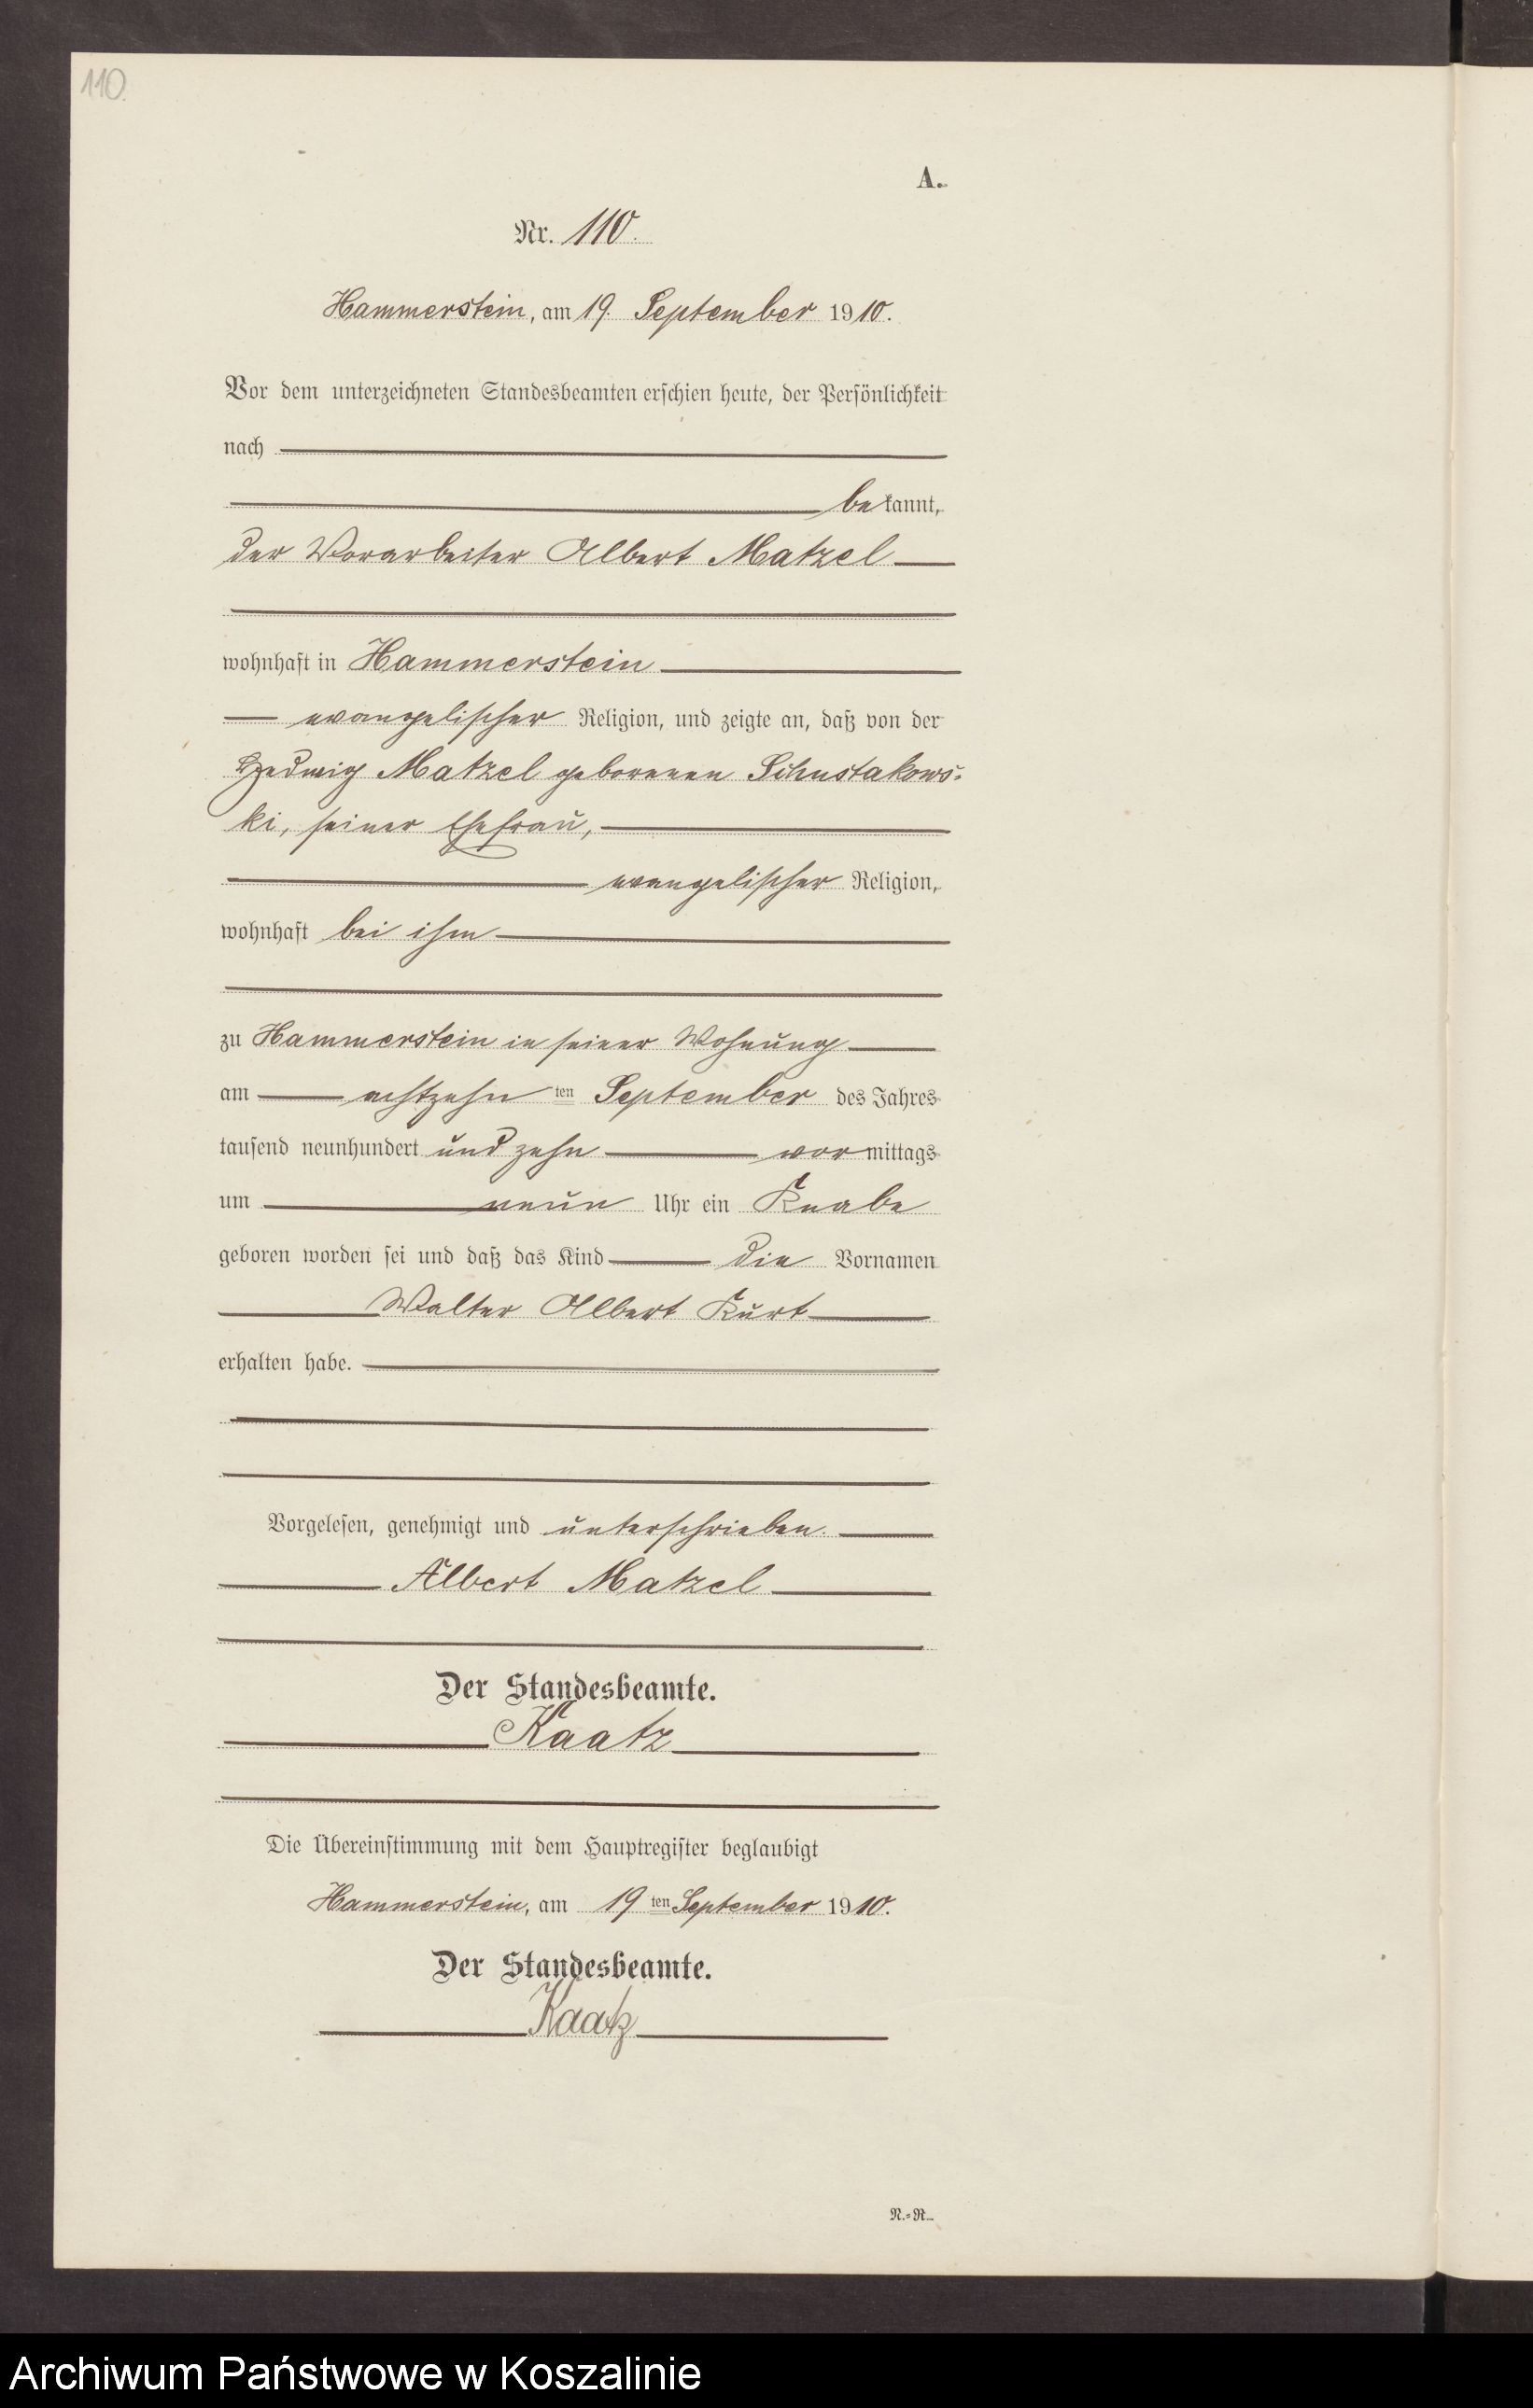 110.
A.
Nr. 110.
Hammerstein, am 19. September 1910.
Vor dem unterzeichneten Standesbeamten erschien heute, der Persönlichkeit
nach
bekannt,
der Vorarbeiter Albert Matzel
wohnhaft in Hammerstein
evangelischer Religion, und zeigte an, daß von der
Hedwig Matzel geborenen Schustakows-
ki, seiner Ehefrau,
evangelischer Religion,
wohnhaft bei ihm
zu Hammerstein in seiner Wohnung
am achtzehn ten September des Jahres
tausend neunhundert und zehn vormittags
um neun Uhr ein Knabe
geboren worden sei und daß das Kind die Vornamen
Walter Albert Kurt
erhalten habe.
Vorgelesen, genehmigt und unterschrieben.
Albert Matzel
Der Standesbeamte.
Kaatz
Die Übereinstimmung mit dem Hauptregister beglaubigt
Hammerstein, am 19 ten September 1910.
Der Standesbeamte.
Kaatz
N.=R.
Archiwum Państwowe w Koszalinie